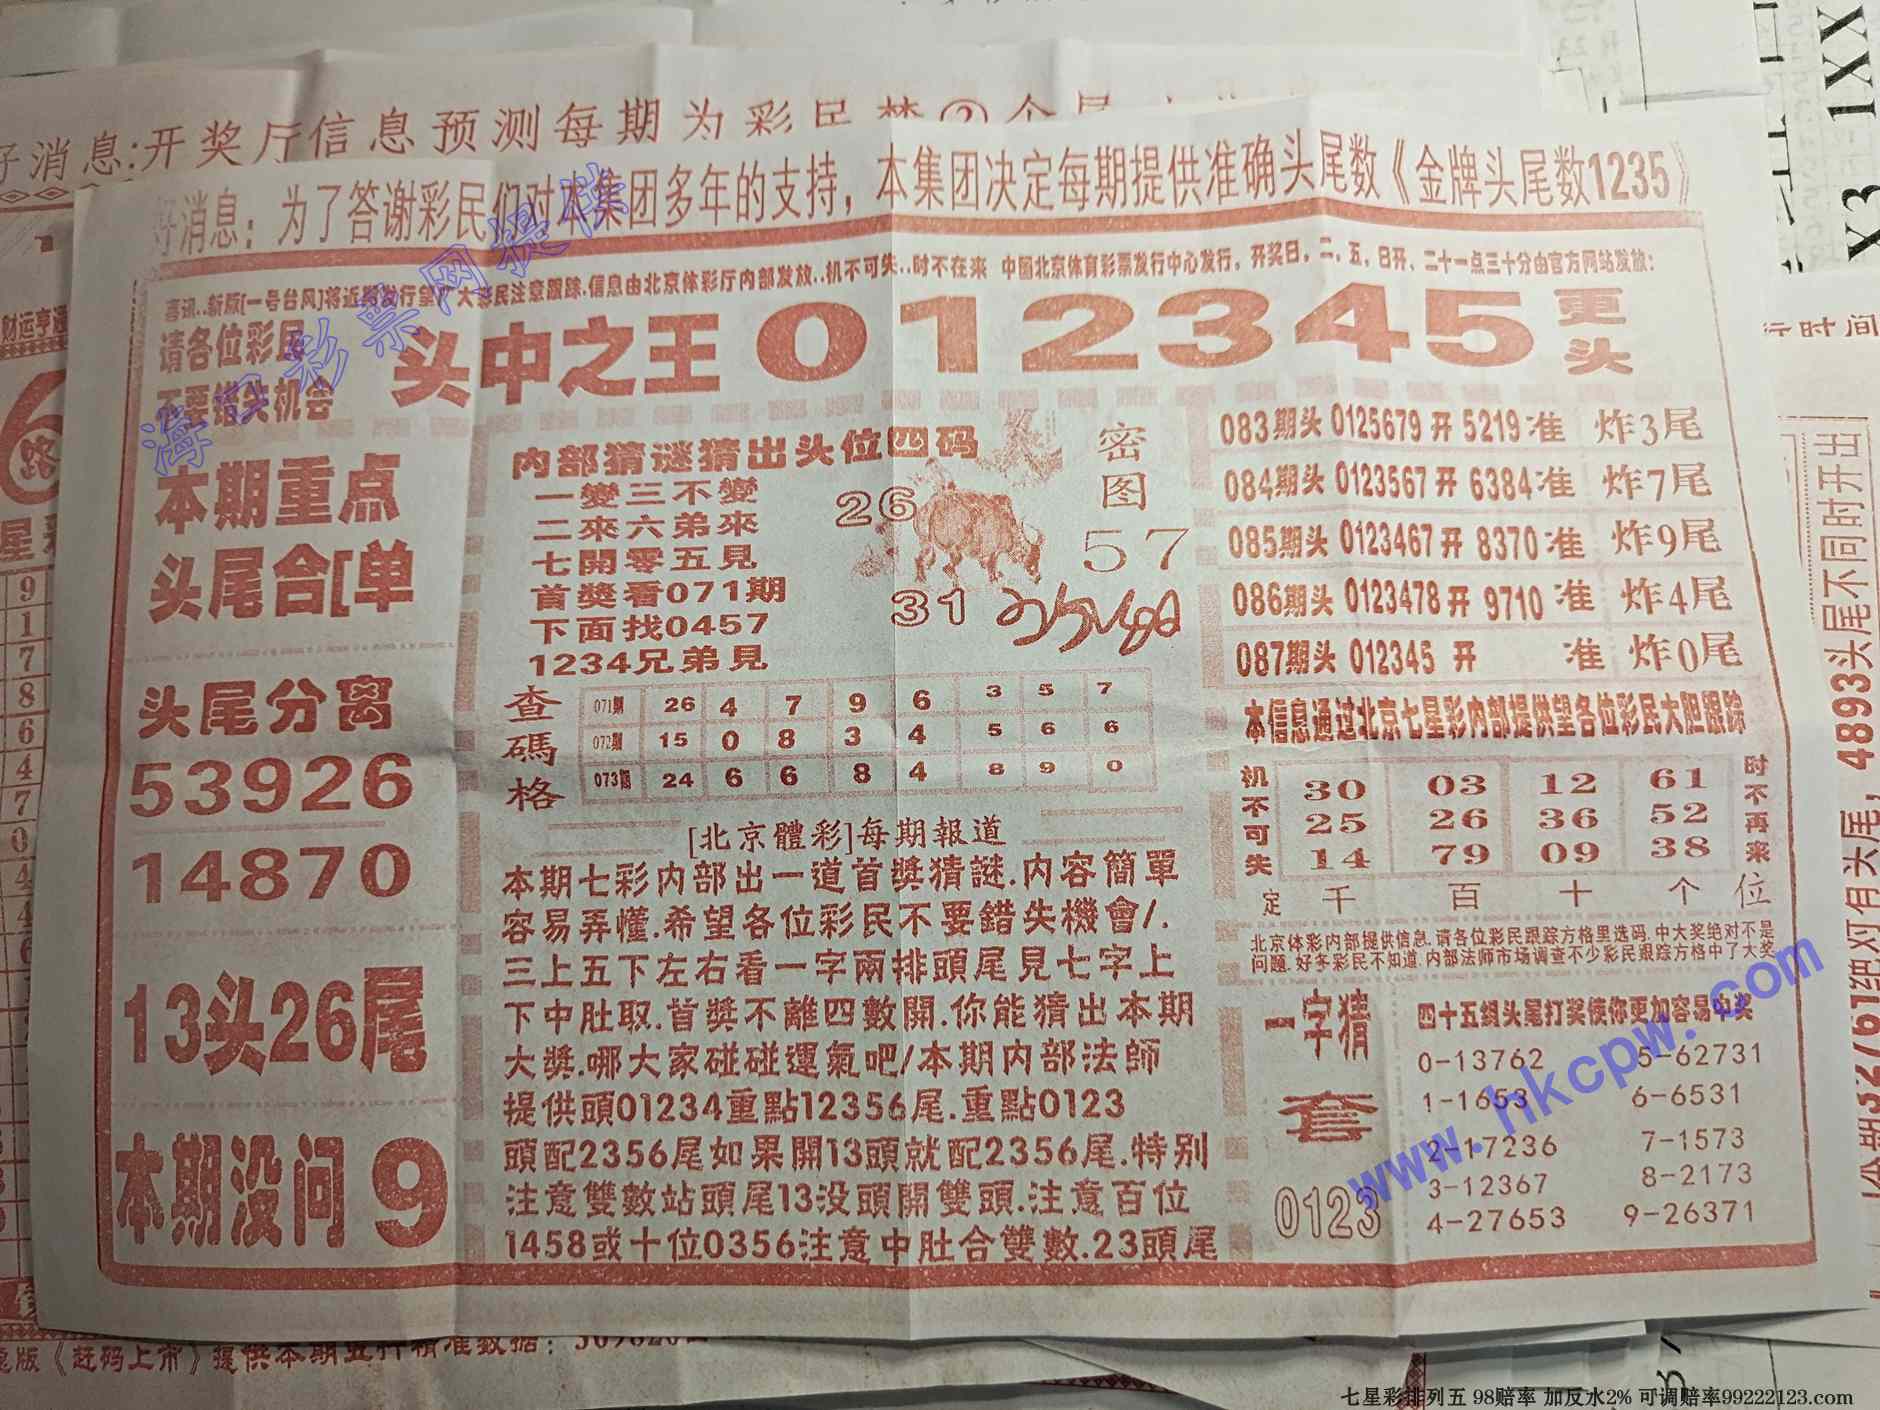 好消息:开奖厅信息预测每期为彩民
好消息：为了答谢彩民们对本集团多年的支持，本集团决定每期提供准确头尾数《金牌头尾数1235》
喜讯..新版[一号台风]将近期发行望广大彩民注意跟踪.信息由北京体彩厅内部发放..机不可失..时不在来 中国北京体育彩票发行中心发行，开奖日，二，五，日开、二十一点三十分由官方网站发放：
请各位彩民
不要错失机会
头中之王012345
更头
本期重点
头尾合[单
头尾分离
53926
14870
13头26尾
本期没问9
内部猜谜猜出头位四码
一變三不變
二來六弟來
七開零五見
首獎看071期
下面找0457
1234兄弟見
26
31
密图
57
查碼格
071期 26 4 7 9 6 3 5 7
072期 15 0 8 3 4 5 6 6
073期 24 6 6 8 4 8 9 0
[北京體彩]每期報道
本期七彩内部出一道首獎猜謎.内容簡單
容易弄懂.希望各位彩民不要錯失機會/.
三上五下左右看一字兩排頭尾見七字上
下中肚取.首獎不離四數開.你能猜出本期
大獎.哪大家碰碰運氣吧/本期内部法師
提供頭01234重點12356尾.重點0123
頭配2356尾如果開13頭就配2356尾.特别
注意雙數站頭尾13没頭開雙頭.注意百位
1458或十位0356注意中肚合雙數.23頭尾
083期头 0125679 开 5219 准 炸3尾
084期头 0123567 开 6384 准 炸7尾
085期头 0123467 开 8370 准 炸9尾
086期头 0123478 开 9710 准 炸4尾
087期头 012345 开 准 炸0尾
本信息通过北京七星彩内部提供望各位彩民大胆跟踪
机不可失
30 03 12 61
25 26 36 52
14 79 09 38
时不再来
定 千 百 十 个 位
北京体彩内部提供信息.请各位彩民跟踪方格里选码.中大奖绝对不是
问题.好多彩民不知道.内部法师市场调查不少彩民跟踪方格中了大奖
一字猜
套
0123
四十五组头尾打奖使你更加容易中奖
0-13762 5-62731
1-1653 6-6531
2-17236 7-1573
3-12367 8-2173
4-27653 9-26371
海口彩票网提供
www.hkcpw.com
财运亨通
行时间
4893头尾不同时开出
32761绝对有头尾，
1XX
X3
《赶码上市》提供本期五料精准数据：
七星彩排列五 98赔率 加反水2% 可调赔率99222123.com